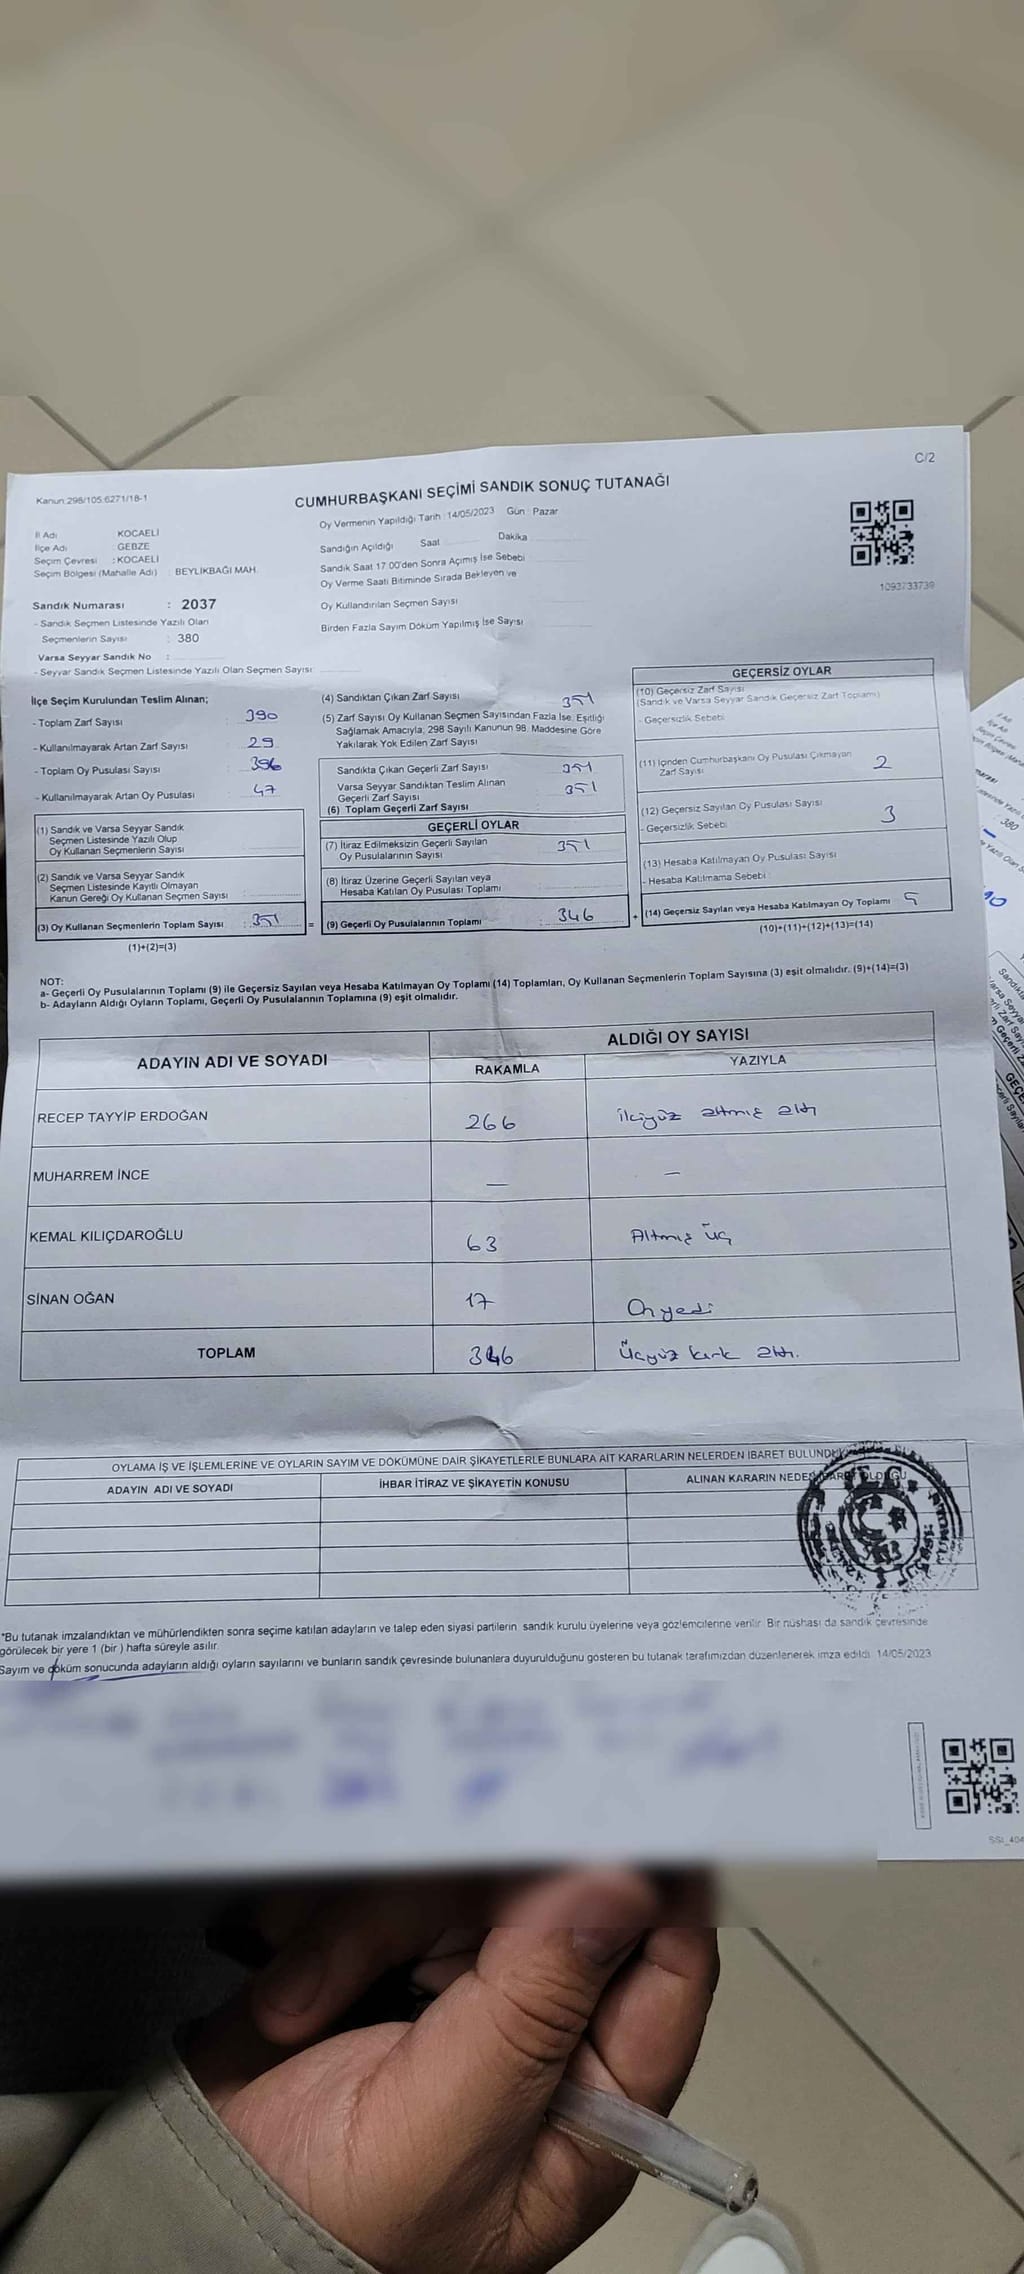 C/2
Kanun:298/105.6271/18-1
CUMHURBAŞKANI SEÇİMİ SANDIK SONUÇ TUTANAĞI
İl Adı KOCAELİ
İlçe Adı GEBZE
Seçim Çevresi : KOCAELİ
Seçim Bölgesi (Mahalle Adı) : BEYLIKBAĞI MAH.
Oy Vermenin Yapıldığı Tarih : 14/05/2023 Gün : Pazar
Sandığın Açıldığı Saat Dakika
Sandık Saat 17:00'den Sonra Açımış İse Sebebi
Oy Verme Saati Bitiminde Sırada Bekleyen ve
Oy Kullandırılan Seçmen Sayısı
Birden Fazla Sayım Döküm Yapılmış İse Sayısı
1093733739
Sandık Numarası : 2037
- Sandık Seçmen Listesinde Yazılı Olan
Seçmenlerin Sayısı : 380
Varsa Seyyar Sandık No :
- Seyyar Sandık Seçmen Listesinde Yazılı Olan Seçmen Sayısı:
İlçe Seçim Kurulundan Teslim Alınan;
- Toplam Zarf Sayısı : 390
- Kullanılmayarak Artan Zarf Sayısı : 29
- Toplam Oy Pusulası Sayısı : 396
- Kullanılmayarak Artan Oy Pusulası : 47
(1) Sandık ve Varsa Seyyar Sandık
Seçmen Listesinde Yazılı Olup
Oy Kullanan Seçmenlerin Sayısı
(2) Sandık ve Varsa Seyyar Sandık
Seçmen Listesinde Kayıtlı Olmayan
Kanun Gereği Oy Kullanan Seçmen Sayısı
(3) Oy Kullanan Seçmenlerin Toplam Sayısı : 351
(1)+(2)=(3)
(4) Sandıktan Çıkan Zarf Sayısı 351
(5) Zarf Sayısı Oy Kullanan Seçmen Sayısından Fazla İse, Eşitliği
Sağlamak Amacıyla, 298 Sayılı Kanunun 98. Maddesine Göre
Yakılarak Yok Edilen Zarf Sayısı
Sandıkta Çıkan Geçerli Zarf Sayısı : 351
Varsa Seyyar Sandıktan Teslim Alınan
Geçerli Zarf Sayısı : 351
(6) Toplam Geçerli Zarf Sayısı
GEÇERLİ OYLAR
(7) İtiraz Edilmeksizin Geçerli Sayılan
Oy Pusulalarının Sayısı : 351
(8) İtiraz Üzerine Geçerli Sayılan veya
Hesaba Katılan Oy Pusulası Toplamı
= (9) Geçerli Oy Pusulalarının Toplamı : 346
GEÇERSİZ OYLAR
(10) Geçersiz Zarf Sayısı
(Sandık ve Varsa Seyyar Sandık Geçersiz Zarf Toplamı)
- Geçersizlik Sebebi
(11) İçinden Cumhurbaşkanı Oy Pusulası Çıkmayan
Zarf Sayısı 2
(12) Geçersiz Sayılan Oy Pusulası Sayısı 3
- Geçersizlik Sebebi
(13) Hesaba Katılmayan Oy Pusulası Sayısı
- Hesaba Katılmama Sebebi
+ (14) Geçersiz Sayılan veya Hesaba Katılmayan Oy Toplamı 5
(10)+(11)+(12)+(13)=(14)
NOT:
a- Geçerli Oy Pusulalarının Toplamı (9) ile Geçersiz Sayılan veya Hesaba Katılmayan Oy Toplamı (14) Toplamları, Oy Kullanan Seçmenlerin Toplam Sayısına (3) eşit olmalıdır. (9)+(14)=(3)
b- Adayların Aldığı Oyların Toplamı, Geçerli Oy Pusulalarının Toplamına (9) eşit olmalıdır.
ADAYIN ADI VE SOYADI ALDIĞI OY SAYISI
RAKAMLA YAZIYLA
RECEP TAYYİP ERDOĞAN 266 ikiyüz altmış altı
MUHARREM İNCE — —
KEMAL KILIÇDAROĞLU 63 Altmış üç
SİNAN OĞAN 17 Onyedi
TOPLAM 346 Üçyüz kırk altı.
OYLAMA İŞ VE İŞLEMLERİNE VE OYLARIN SAYIM VE DÖKÜMÜNE DAİR ŞİKAYETLERLE BUNLARA AİT KARARLARIN NELERDEN İBARET BULUNDU
ADAYIN ADI VE SOYADI İHBAR İTİRAZ VE ŞİKAYETİN KONUSU ALINAN KARARIN NEDEN İBARET OLDUĞU
*Bu tutanak imzalandıktan ve mühürlendikten sonra seçime katılan adayların ve talep eden siyasi partilerin sandık kurulu üyelerine veya gözlemcilerine verilir. Bir nüshası da sandık çevresinde
görülecek bir yere 1 (bir ) hafta süreyle asılır.
Sayım ve döküm sonucunda adayların aldığı oyların sayılarını ve bunların sandık çevresinde bulunanlara duyurulduğunu gösteren bu tutanak tarafımızdan düzenlenerek imza edildi. 14/05/2023